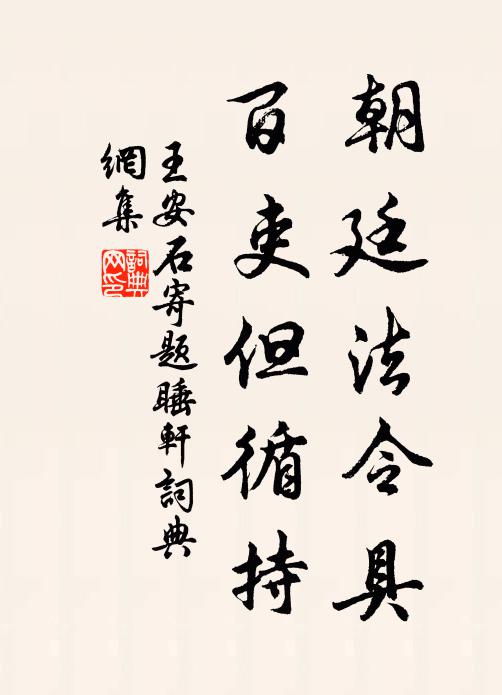 朝廷法令具
百吏但循持
王安石寄题睡軒詞典
網集
詞典
网印